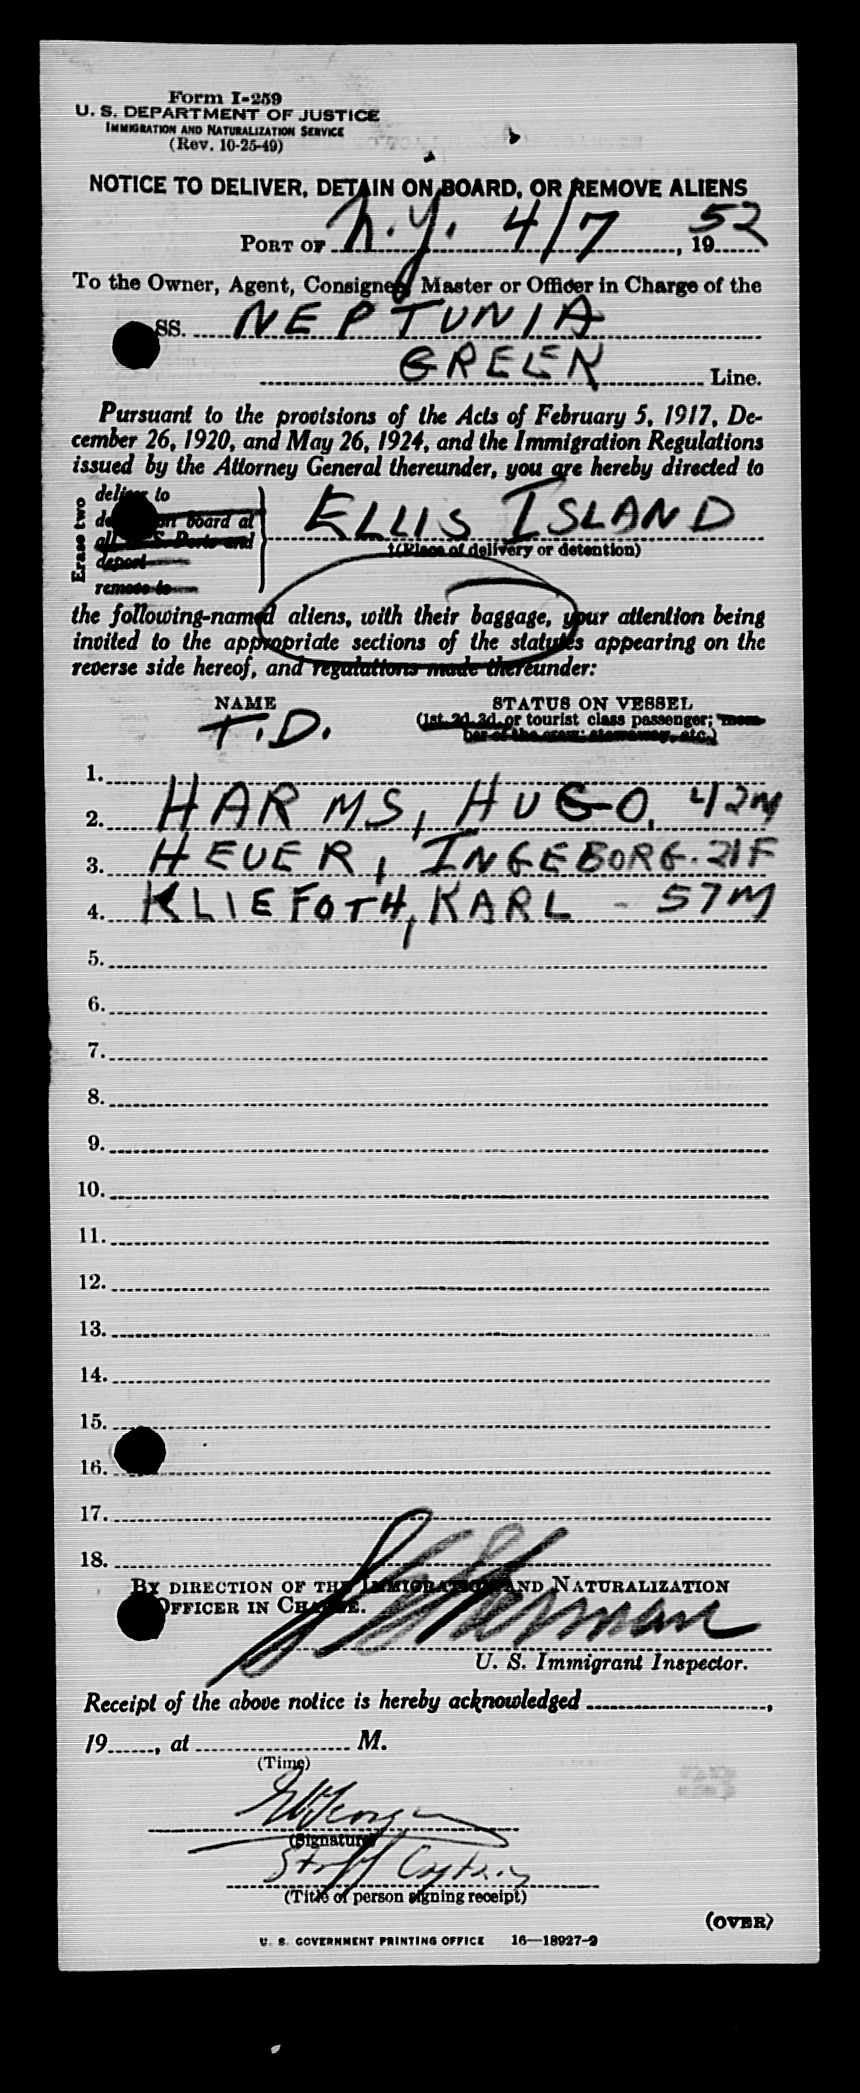 Form I-259
U. S. DEPARTMENT OF JUSTICE
IMMIGRATION AND NATURALIZATION SERVICE
(Rev. 10-25-49)
NOTICE TO DELIVER, DETAIN ON BOARD, OR REMOVE ALIENS
PORT OF N.Y. 4/7, 19 52
To the Owner, Agent, Consignee, Master or Officer in Charge of the
SS. NEPTUNIA
GREEK Line.
Pursuant to the provisions of the Acts of February 5, 1917, De-
cember 26, 1920, and May 26, 1924, and the Immigration Regulations
issued by the Attorney General thereunder, you are hereby directed to
Erase two
deliver to
on board at
all U. S. Ports and
deport
remove to
ELLIS ISLAND
(Place of delivery or detention)
the following-named aliens, with their baggage, your attention being
invited to the appropriate sections of the statutes appearing on the
reverse side hereof, and regulations made thereunder:
NAME STATUS ON VESSEL
(1st, 2d, 3d, or tourist class passenger; mem-
ber of the crew; stowaway, etc.)
T.D.
1.
2. HARMS, HUGO, 42M
3. HEUER, INGEBORG. 21F
4. KLIEFOTH, KARL - 57M
5.
6.
7.
8.
9.
10.
11.
12.
13.
14.
15.
16.
17.
18.
BY DIRECTION OF THE IMMIGRATION AND NATURALIZATION
OFFICER IN CHARGE.
U. S. Immigrant Inspector.
Receipt of the above notice is hereby acknowledged,
19, at M.
(Time)
(Signature)
Staff Captain
(Title of person signing receipt)
(OVER)
U. S. GOVERNMENT PRINTING OFFICE 16—18927-2